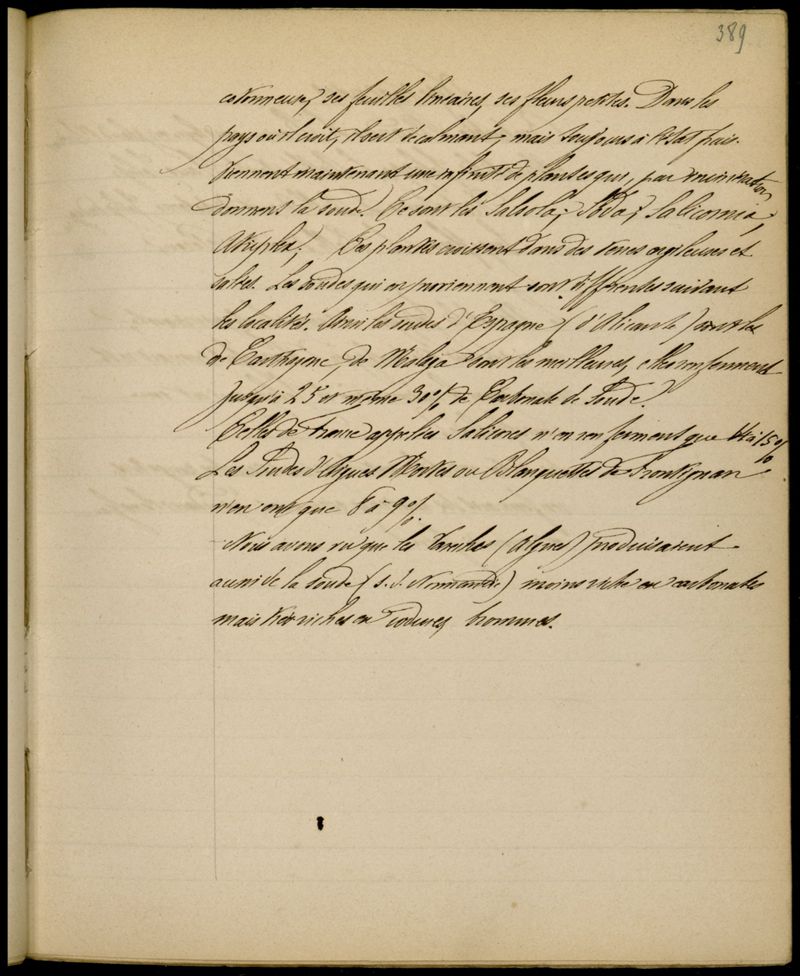 389
cotonneuse, ses feuilles linéaires, ses fleurs petites. Dans les
pays où il croit, il sert de calmant, mais toujours à l'état frais.
Viennent maintenant une infinité de plantes qui, par incinération
donnent la soude. Ce sont les Salsola, Soda, Salicornia,
Atriplex. Ces plantes croissent dans des terres argileuses et
salées. Les soudes qui en proviennent sont différentes suivant
les localités. Ainsi les soudes d'Espagne (d'Alicante) sont les
de Carthagene, de Malaga sont les meilleures, elles renferment
jusqu'à 25 et même 30% de Carbonate de Soude.
Celles de France appelées Salicores n'en renferment que 14 à 15%
Les Soudes d'Aigues Mortes ou Blanquettes de Frontignan
n'en ont que 8 à 9%.
Nous avons vu que les Varechs (Algues) produisaient
aussi de la soude (s. d. Normandie) moins riche en carbonates
mais très riches en iodures, bromures.